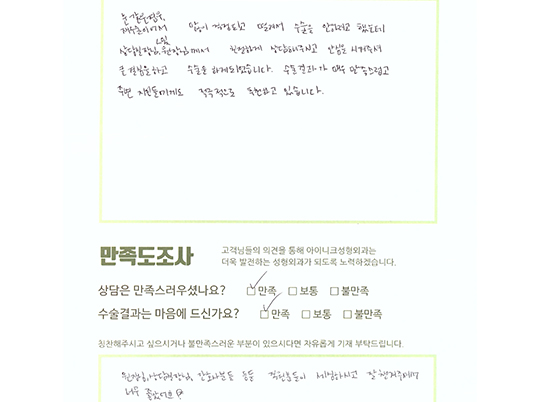 눈 같은경우,
재수술이어서 많이 걱정되고 떨려서 수술을 안하려고 했는데
상담실장님, 원장님께서 친절하게 상담해주시고 안심을 시켜주셔
큰결심을하고 수술을 하게되었습니다. 수술결과가 매우 만족스럽고
주변 지인들에게도 적극적으로 추천하고 있습니다.
만족도조사
고객님들의 의견을 통해 아이니크성형외과는
더욱 발전하는 성형외과가 되도록 노력하겠습니다.
상담은 만족스러우셨나요? □ 만족 □ 보통 □ 불만족
수술결과는 마음에 드신가요? □ 만족 □ 보통 □ 불만족
칭찬해주시고 싶으시거나 불만족스러운 부분이 있으시다면 자유롭게 기재 부탁드립니다.
원장님, 상담실장님, 간호사분들 등등 직원분들이 세심하시고 잘 챙겨주셔서
너무 좋았어요